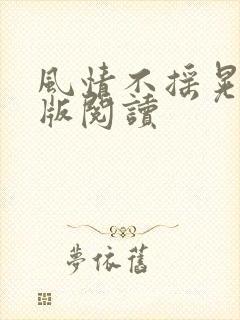 風情不搖晃
版閱讀
夢依舊